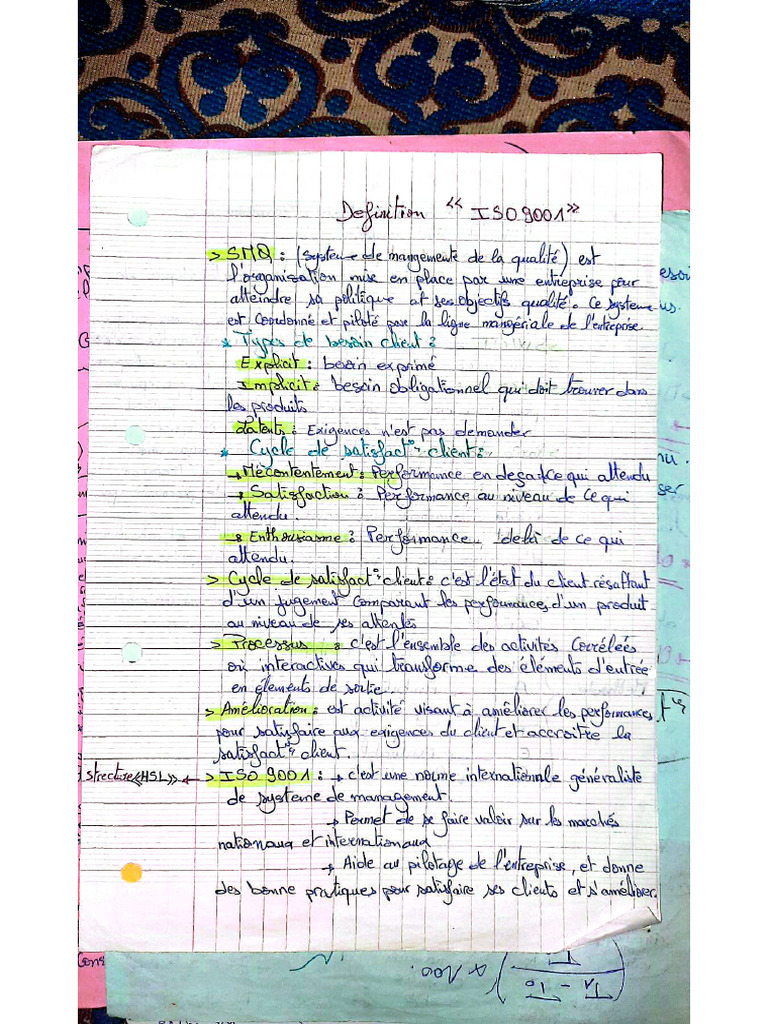 Definition « ISO 9001 »
> SMQ : (système de mangemente de la qualité) est
l'organisation mise en place par une entreprise pour
atteindre sa politique et ses objectifs qualité. Ce systeme
est Coordonné et piloté par la ligne managériale de l'entreprise.
* Types de besoin client :
Explicit : besoin exprimé
Implicit : besoin obligationnel qui doit trouver dans
les produits
Latents : Exigences n'est pas demander
* Cycle de satisfact° client :
→ Mécontentement : Performance en deça de ce qui attendu
→ Satisfaction : Performance au niveau de ce qui
attendu.
→ Enthousiasme : Performance delà de ce qui
attendu.
> Cycle de satisfact° client : c'est l'état du client résultant
d'un jugement comparant les performances d'un produit
au niveau de ses attentes
> Processus : c'est l'ensemble des activités Corrélées
où interactives qui transforme des éléments d'entrée
en élements de sortie.
> Amélioration : est activité visant à améliorer les performances
pour satisfaire aux exigences du client et accroitre la
satisfact° client.
strecture «HSL» ← > ISO 9001 : → c'est une norme internationale généraliste
de systeme de management.
→ Permet de se faire valoir sur les marchés
nationaux et internationaux
→ Aide au pilotage de l'entreprise, et donne
des bonne pratiques pour satisfaire ses clients et s'améliorer.